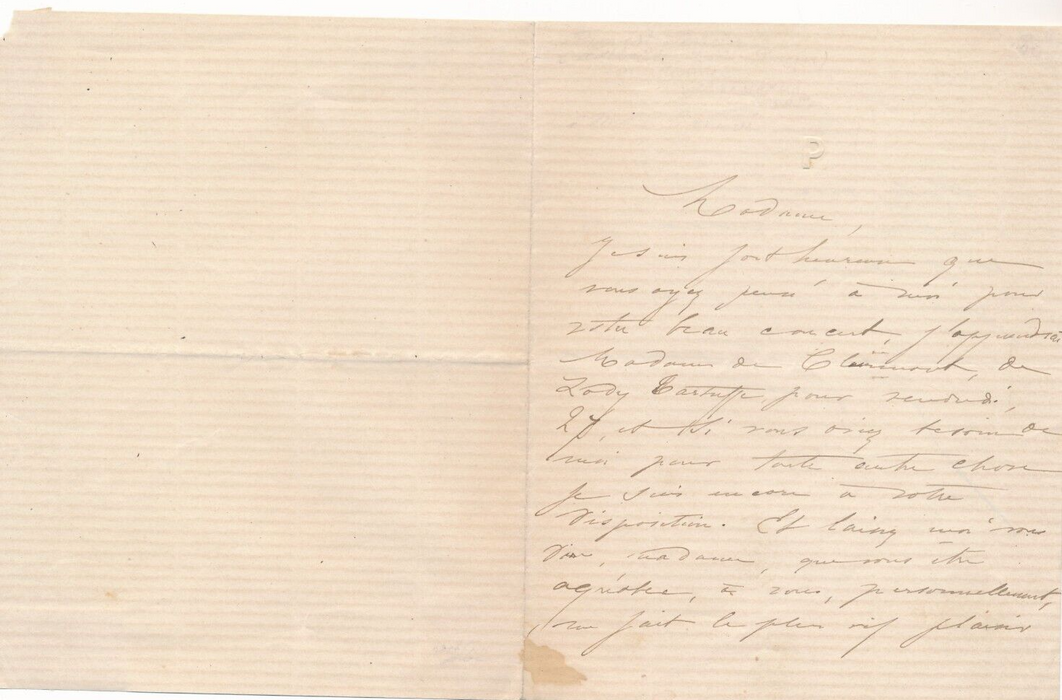 P
Madame,
Je suis fort heureuse que
vous ayez pensé à moi pour
votre beau concert, j'apprendrai
Madame de Clairmont, de
Lady Tartuffe, pour vendredi,
27, et si vous avez besoin de
moi pour toute autre chose
je suis encore à votre
disposition. Et laissez moi vous
dire, madame, que vous être
agréable, à vous, personnellement,
me fait le plus vif plaisir